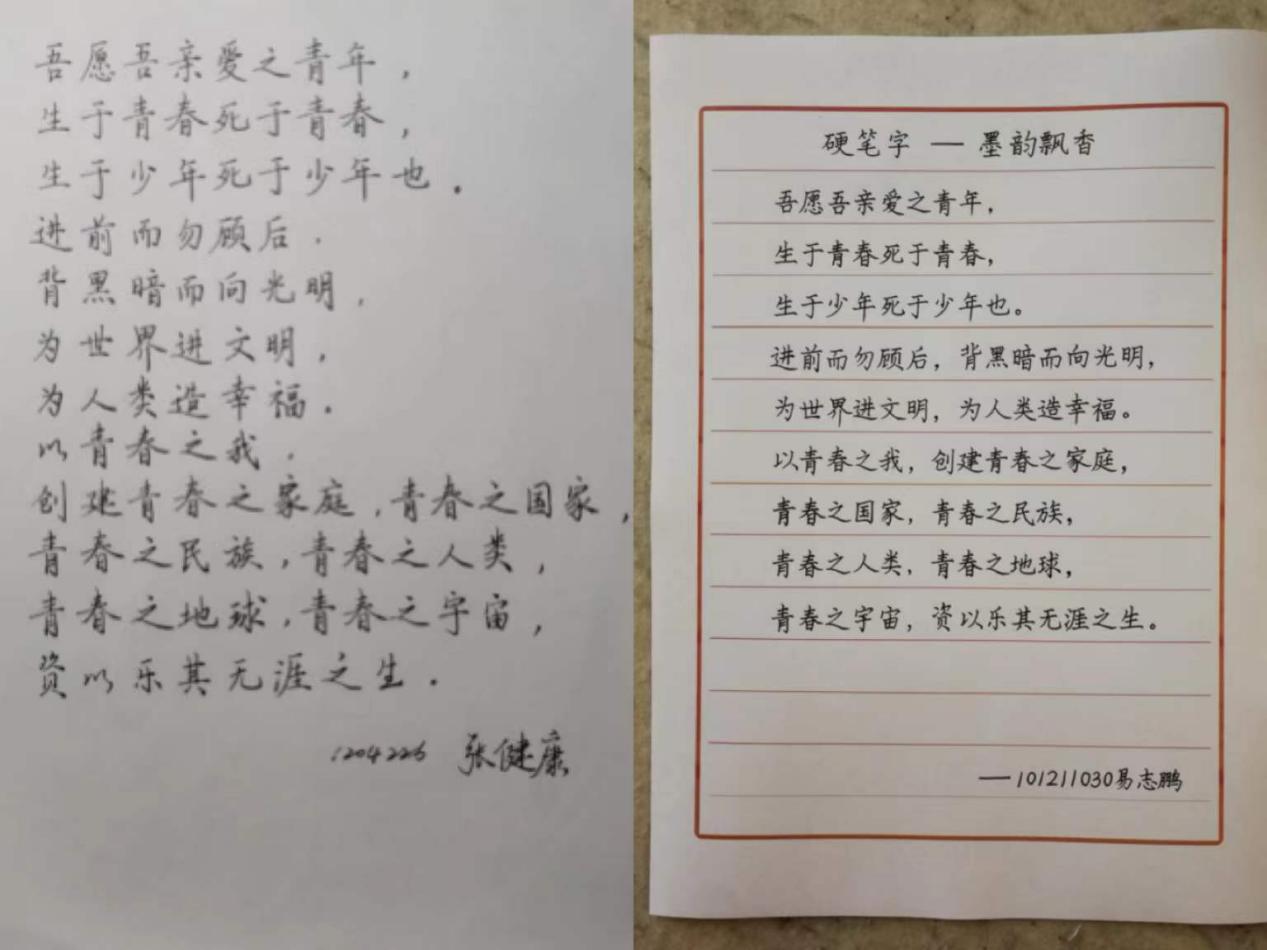 吾愿吾亲愛之青年，
生于青春死于青春，
生于少年死于少年也．
进前而勿顾后．
背黑暗而向光明，
为世界进文明，
为人类造幸福．
以青春之我．
创建青春之家庭，青春之国家，
青春之民族，青春之人类，
青春之地球，青春之宇宙，
资以乐其无涯之生．
1204226 张健康
硬笔字 — 墨韵飘香
吾愿吾亲爱之青年，
生于青春死于青春，
生于少年死于少年也。
进前而勿顾后，背黑暗而向光明，
为世界进文明，为人类造幸福。
以青春之我，创建青春之家庭，
青春之国家，青春之民族，
青春之人类，青春之地球，
青春之宇宙，资以乐其无涯之生。
—101211030易志鹏